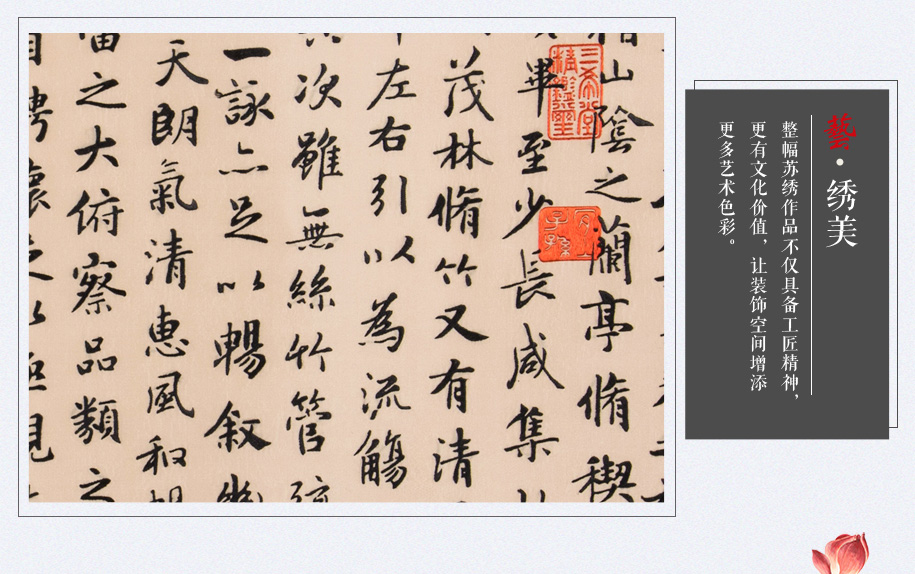 藝·绣美
整幅苏绣作品不仅具备工匠精神，
更有文化价值，让装饰空间增添
更多艺术色彩。
山陰之蘭亭脩稧
畢至少長咸集
茂林脩竹又有清
左右引以為流觴
次雖無絲竹管弦
一詠亦足以暢叙幽
天朗氣清惠風和暢
宙之大俯察品類之
三希堂精鑑璽
宜子孫